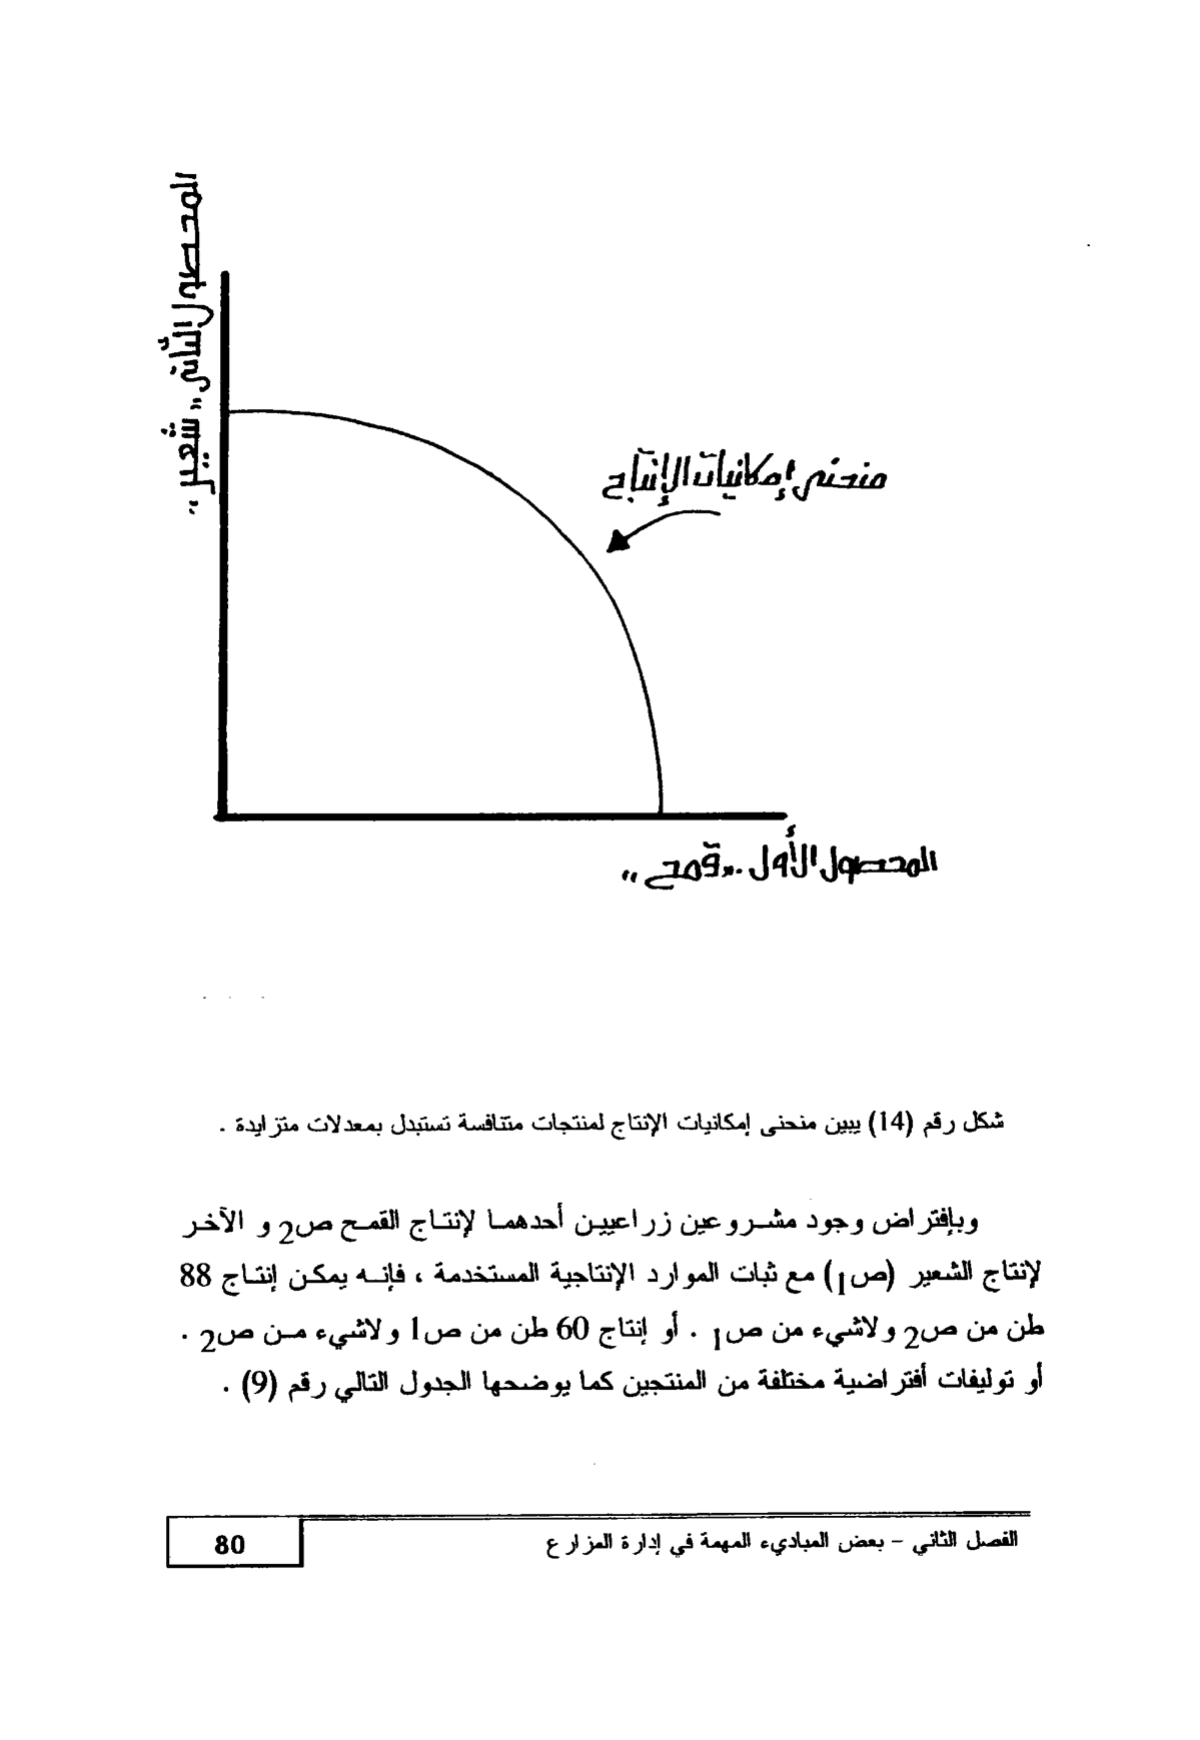 المحصول الثاني ,, شعير ,,
منحنى إمكانيات الإنتاج
المحصول الأول ,, قمح ,,
شكل رقم (14) يبين منحنى إمكانيات الإنتاج لمنتجات متنافسة تستبدل بمعدلات متزايدة .
وبإفتراض وجود مشروعين زراعيين أحدهما لإنتاج القمح ص2 و الآخر
لإنتاج الشعير (ص1) مع ثبات الموارد الإنتاجية المستخدمة ، فإنه يمكن إنتاج 88
طن من ص2 ولاشيء من ص1 . أو إنتاج 60 طن من ص1 ولاشيء من ص2 .
أو توليفات أفتراضية مختلفة من المنتجين كما يوضحها الجدول التالي رقم (9) .
الفصل الثاني – بعض المباديء المهمة في إدارة المزارع
80